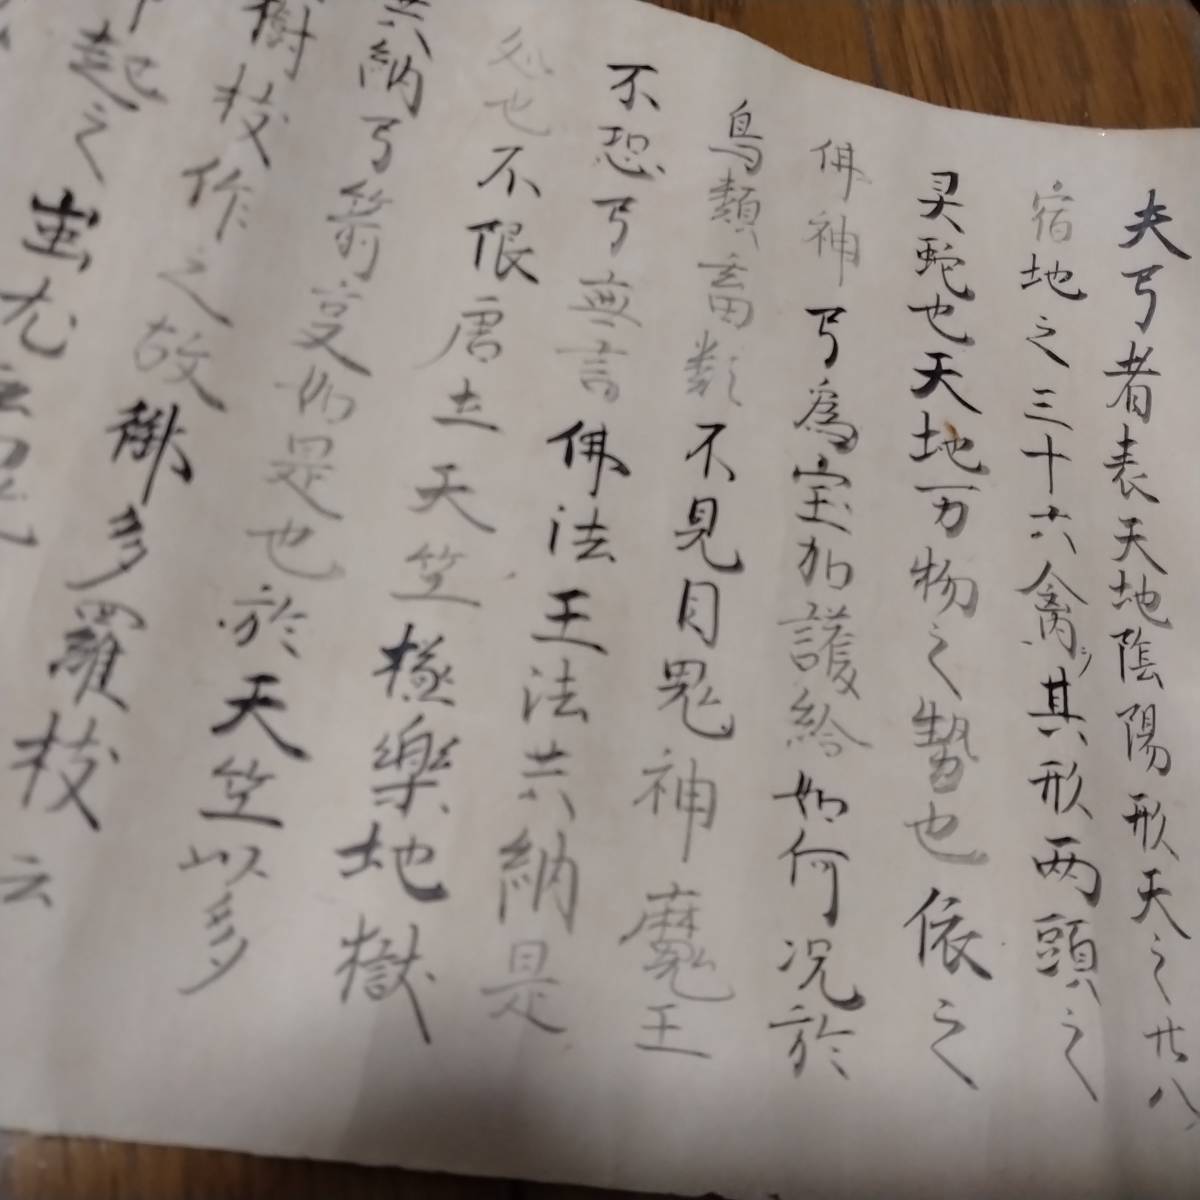 夫弓者表天地陰陽形天之廿八
宿地之三十六禽シ其形両頭ハ之
灵蛇也天地万物之勢也依之
佛神弓為宝加護給如何況於
鳥類畜類不見目鬼神魔王
不恐弓無言佛法王法共納是
処也不限唐土天竺極樂地獄
共納弓箭変如是也於天竺以多
樹枝作之故佛多羅枝云
起之蚩尤